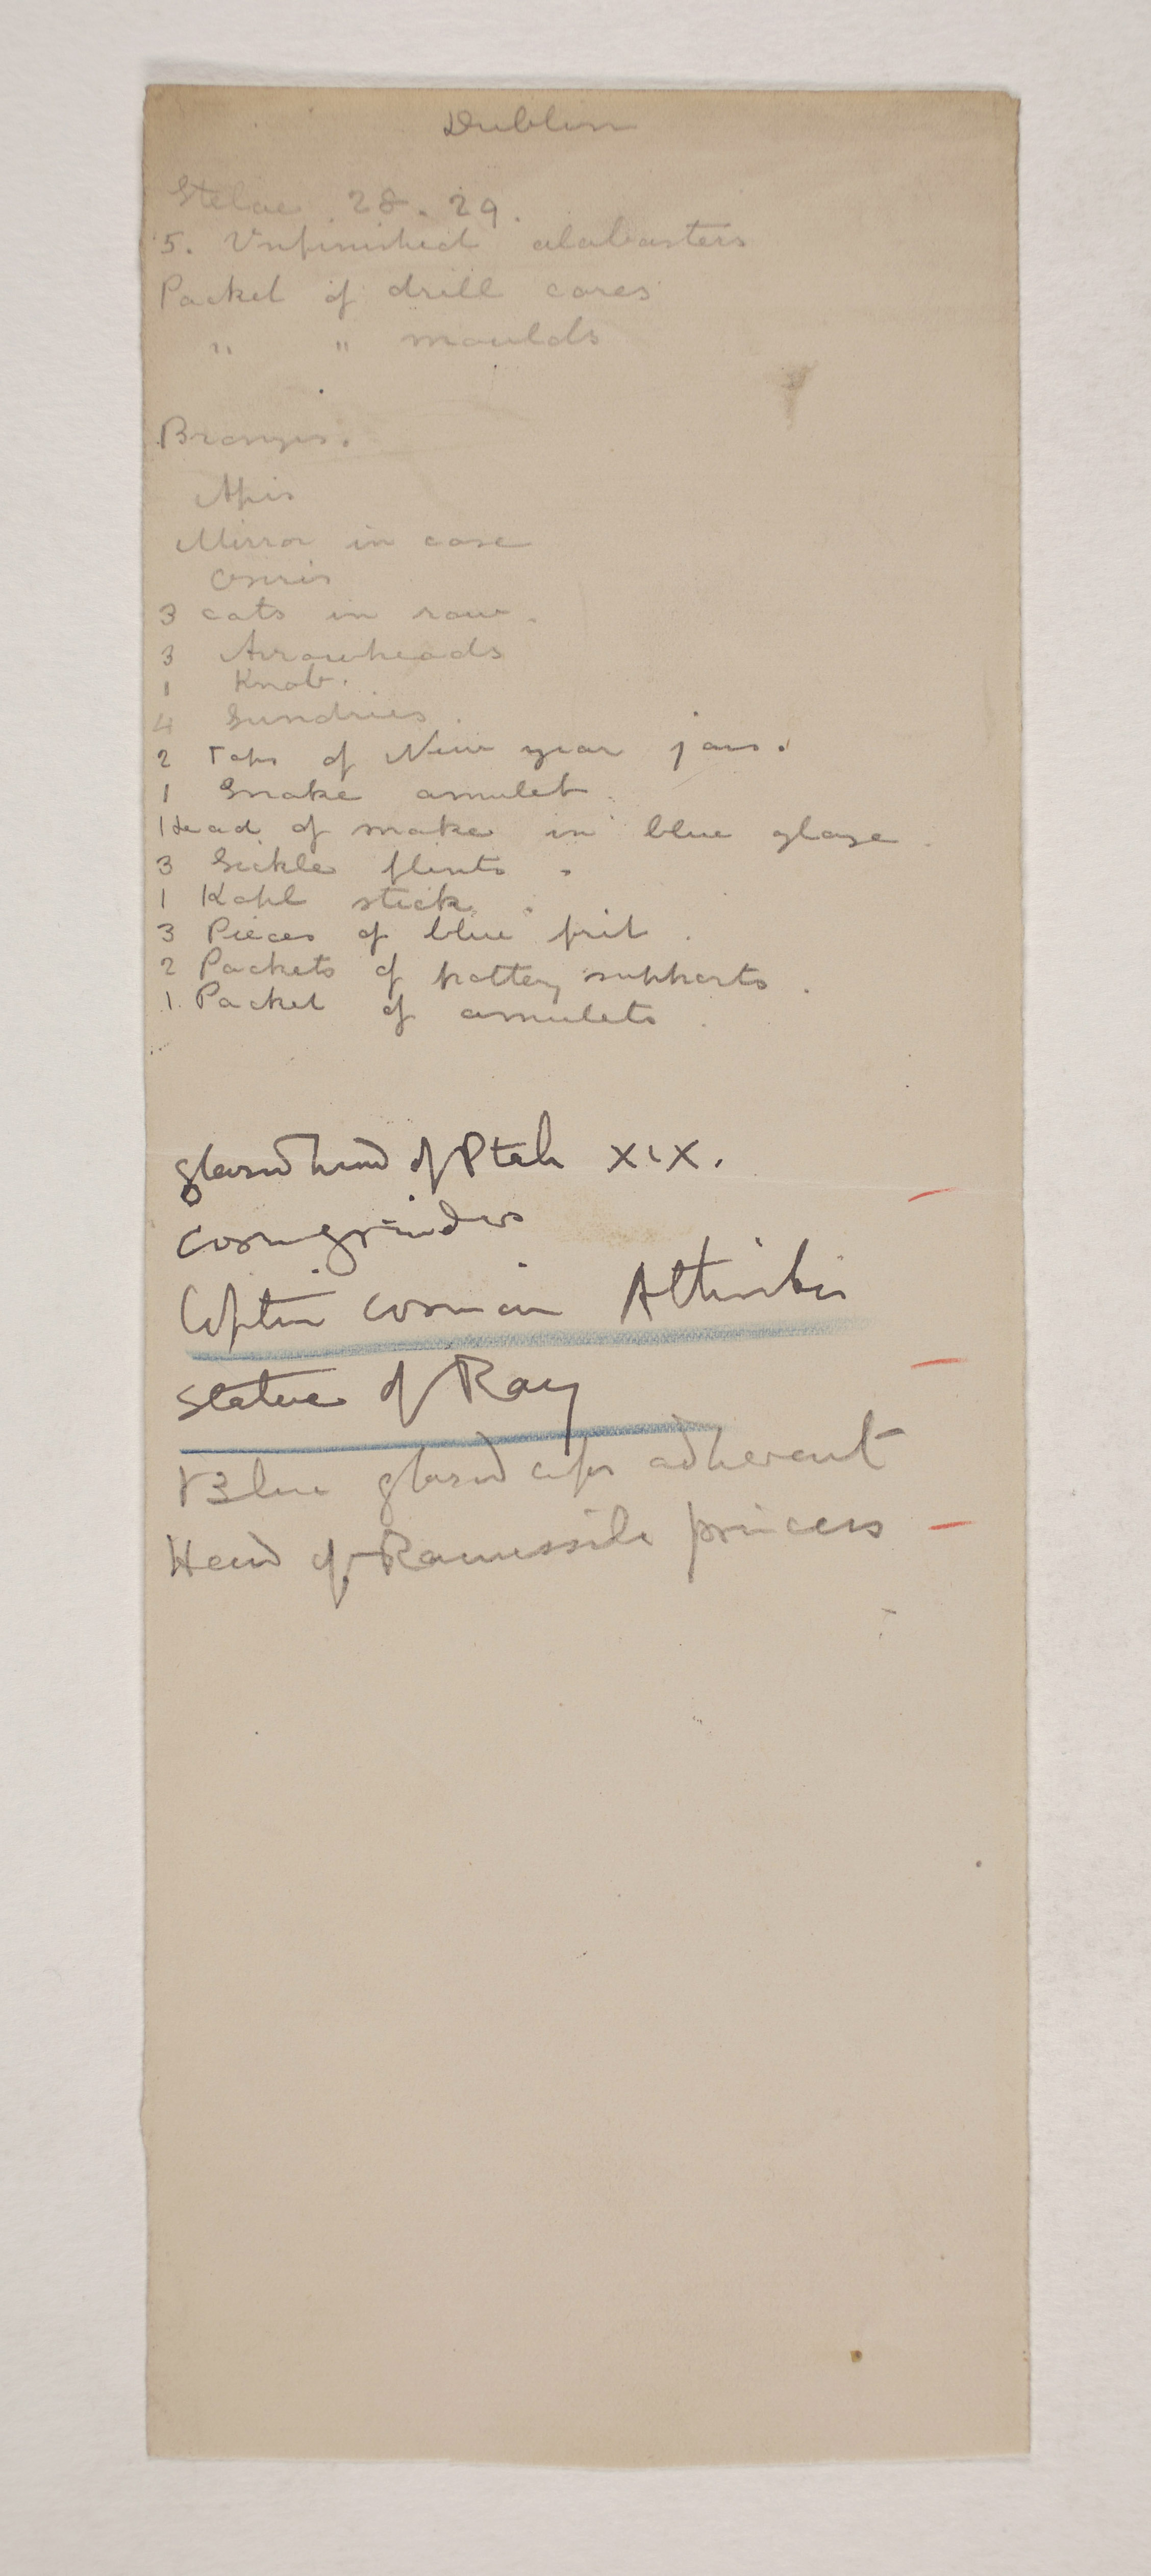 Dublin
Stelae . 28 . 29 .
5. Unfinished alabasters
Packet of drill cores
" " moulds
Bronzes .
Apis
Mirror in case
Osiris
3 cats in row .
3 Arrowheads
1 Knob .
4 Sundries .
2 Tops of New year jars .
1 Snake amulet .
1 Head of snake in blue glaze .
3 Sickle flints .
1 Kohl stick .
3 Pieces of blue frit .
2 Packets of pottery supports .
1 Packet of amulets .
glazed head of Ptah XIX.
Corn grinders
Coptic cornice Athribis
Statue of Ray
Blue glazed cups adherent
Head of Ramesside princess